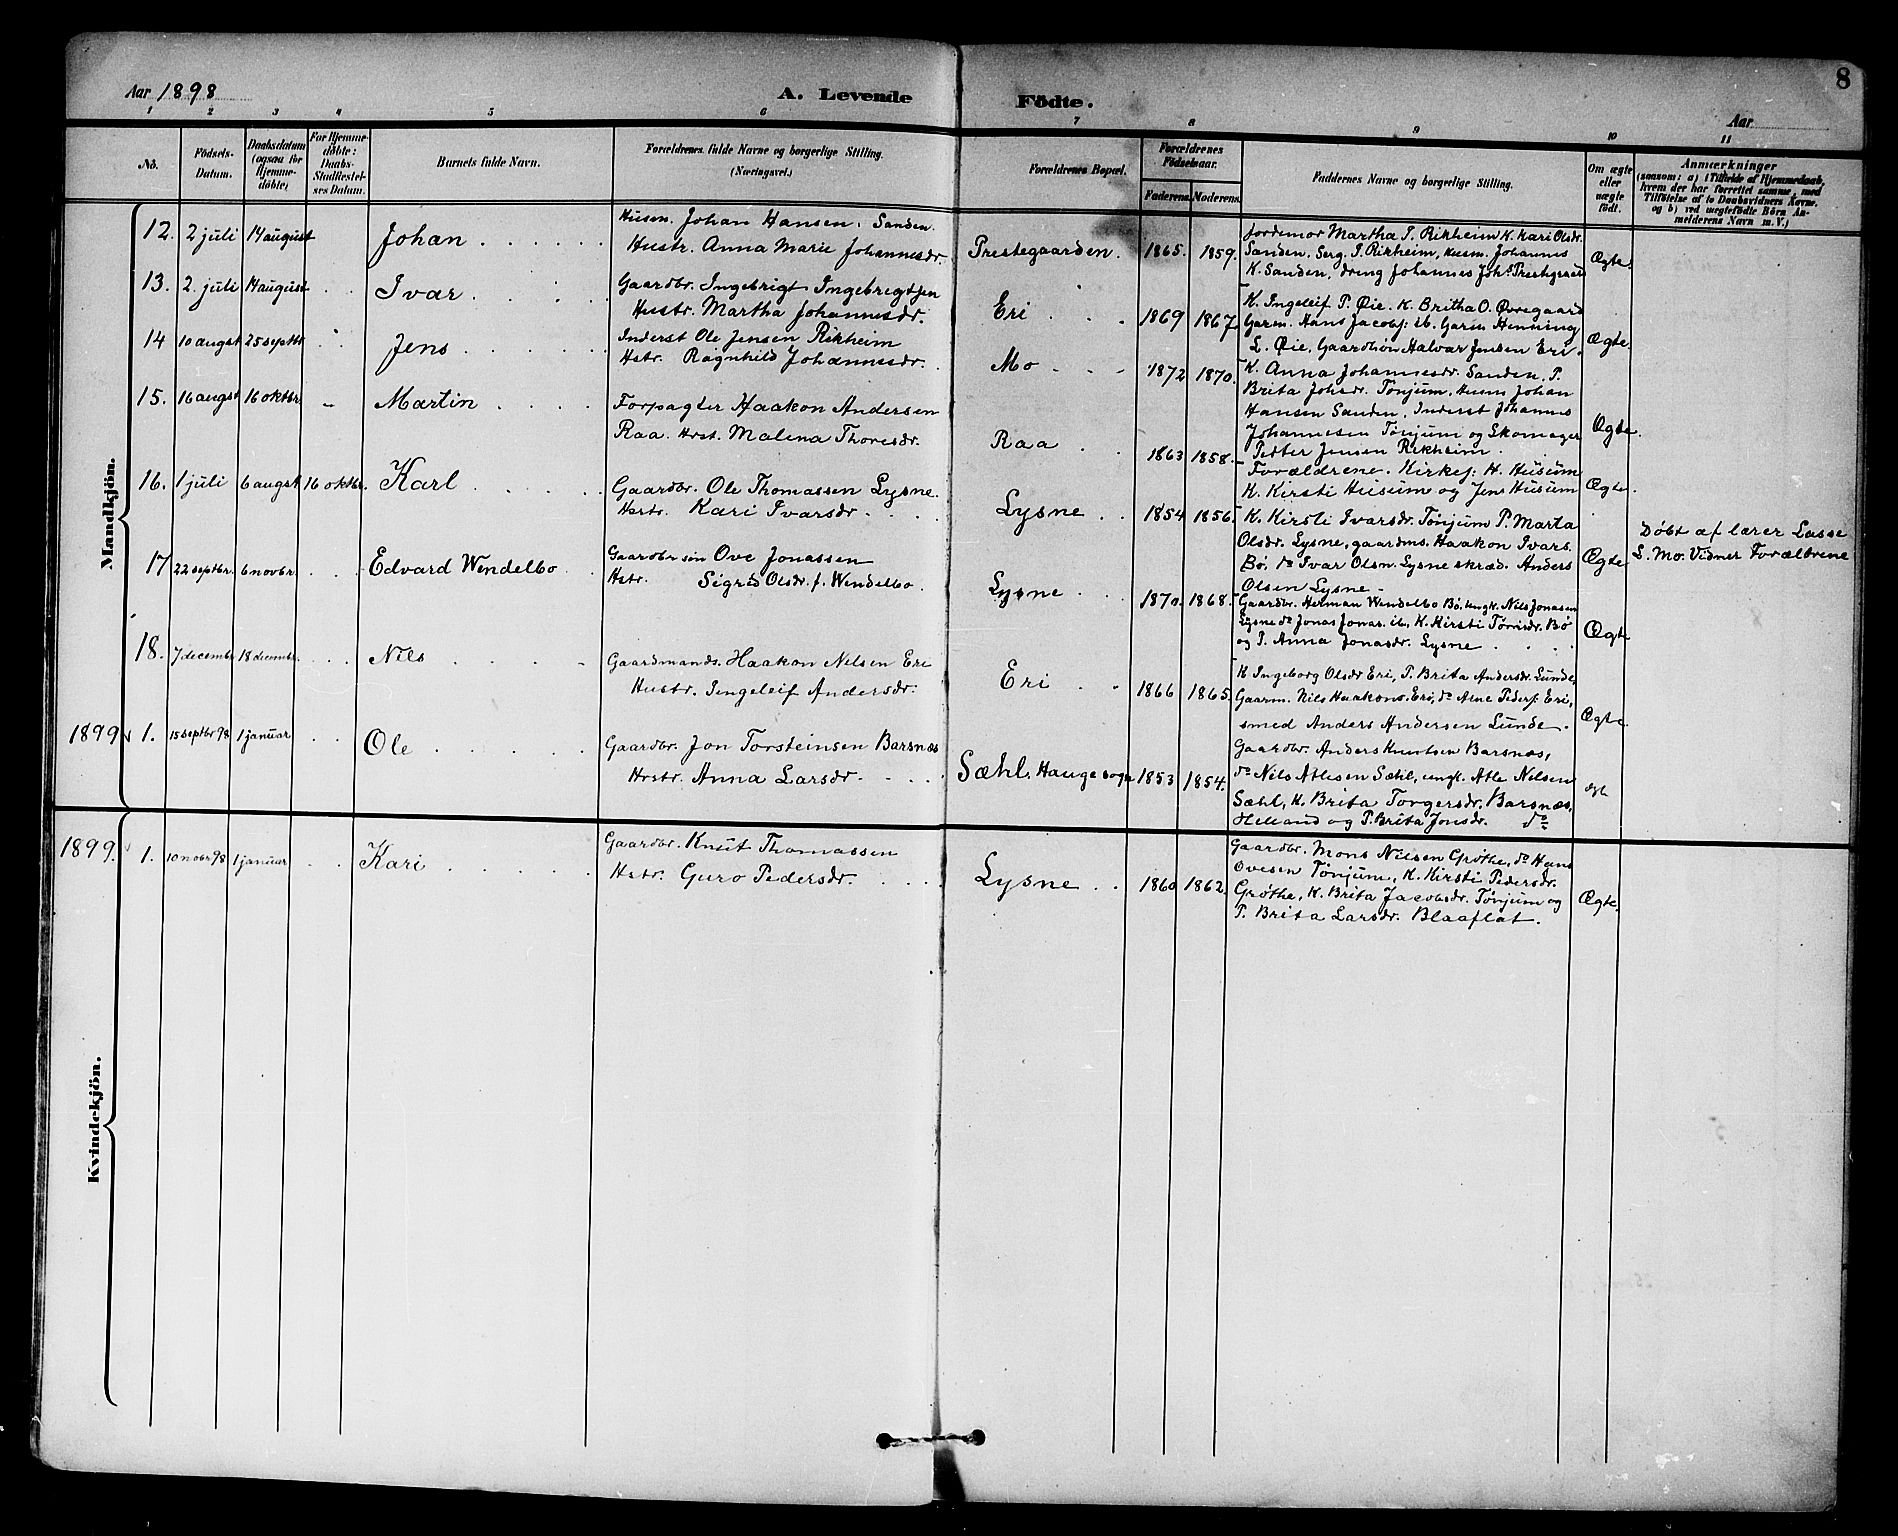 8
Aar 1898
A. Levende Födte.
Aar
1 2 3 4 5 6 7 8 9 10 11
No.
Födsels-Datum.
Daabsdatum (ogsaa for Hjemme-döbte)
For Hjemme-döbte: Daabs-Stadfæstel-ses Datum.
Barnets fulde Navn.
Forældrenes fulde Navne og borgerlige Stilling.
(Næringsvei.)
Forældrenes Bopæl.
Forældrenes Födselsaar.
Faderens. Moderens.
Faddernes Navne og borgerlige Stilling.
Om ægte eller uægte födt.
Anmærkninger
(saasom: a) i Tilfælde af Hjemmedaab,
hvem der har forrettet samme, med
Tilföielse af to Daabsvidners Navne.
og b) ved uægtefödte Börn An-
melderens Navn m. V.)
Mandkjön.
12. 2 juli 14 august Johan
Husm. Johan Hansen. Sanden.
Hustr. Anna Marie Johannesdr.
Prestegaarden. 1865. 1859.
Jordemor Martha P. Rikheim K. Kari Olsdr.
Sanden. Serg. P. Rikheim, Husm. Johannes
K. Sanden, dreng Johannes Joh. Prestegaard
Ægte.
13. 2 juli 14 august Ivar
Gaardbr. Ingebrigt Ingebregtsen
Hustr. Martha Johannesdr.
Eri 1869 1867
K. Ingeleif P. Øie. K. Britha O. Øvregaard
Garm. Hans Jacobs: ib. Garm Henning
L. Øie, Gaardsøn Halvar Jensen Eri.
Ægte.
14 10 augst 25 septbr Jens
Inderst Ole Jensen Rikheim
Hstr. Ragnhild Johannesdr.
Mo 1872 1870.
K. Anna Johannesdr. Sanden. P.
Brita Johsdr. Tønjum, Husm Johan
Hansen Sanden, Inderst Johannes
Johannesen Tønjum og Skomager
Petter Jensen Rikheim.
Ægte
15. 16 augst 16 oktbr. Martin
Forpagter Haakon Andersen
Raa. Hst. Malena Thoresdr.
Raa 1863 1858.
Forældrene. Kirkes: H. Husum
K. Kirsti Husum og Jens Husum
Ægte.
16. 1 juli 6 augst 16 oktbr. Karl
Gaardbr. Ole Thomassen Lysne.
Hstr. Kari Ivarsdr.
Lysne 1854 1856.
K. Kirsti Ivarsdr. Tønjum P. Marta
Olsdr. Lysne, gaardms. Haakon Ivars.
Bø, do Ivar Olsn. Lysne skræd. Anders
Olsen Lysne
Ægte
Døbt af lærer Lasse
L. Mo. Vidner Forældrene
17 22 septbr. 6 novbr. Edvard Wendelbo
Gaardbr søn Ove Jonassen
Hstr. Sigrid Olsdr. f. Wendelbo
Lysne 1870. 1868.
Gaardbr. Herman Wendelbo Bø, ungk. Nils Jonasen
Lysne do Jonas Jonas. ib, K. Kirsti Tørrisdr. Bø
og P. Anna Jonasdr. Lysne
Ægte
18. 7 decembr 18 decembr. Nils
Gaardmands. Haakon Nilsen Eri
Hustr. Ingeleif Andersdr.
Eri 1866 1865.
K Ingeborg Olsdr Eri, P. Brita Andersdr. Lunde,
Gaarm. Nils Haakons. Eri, do Arne Peders: Eri,
smed Anders Andersen Lunde.
Ægte.
1899 1. 15 septbr 98 1 januar Ole
Gaardbr. Jon Torsteinsen Barsnæs
Hrstr. Anna Larsdr.
Sæhl. Hauge sogn 1853 1854.
Gaardbr. Anders Knutsen Barsnæs,
do Nils Atlesen Sæhl, ungk. Atle Nilsen
Sæhl, K. Brita Torgersdr. Barsnæs,
Helland og P. Brita Jonsdr. do
ægt
Kvindekjön.
1899. 1. 10 nobr 98 1 januar Kari
Gaardbr. Knut Thomassen
Hstr. Guro Pedersdr.
Lysne 1860 1862
Gaardbr. Mons Nilsen Grøthe, do Hans
Ovesen Tønjum, K. Kirsti Pedersdr.
Grøthe, K. Brita Jacobsdr. Tønjum og
P. Brita Larsdr. Blaaflat.
Ægte.